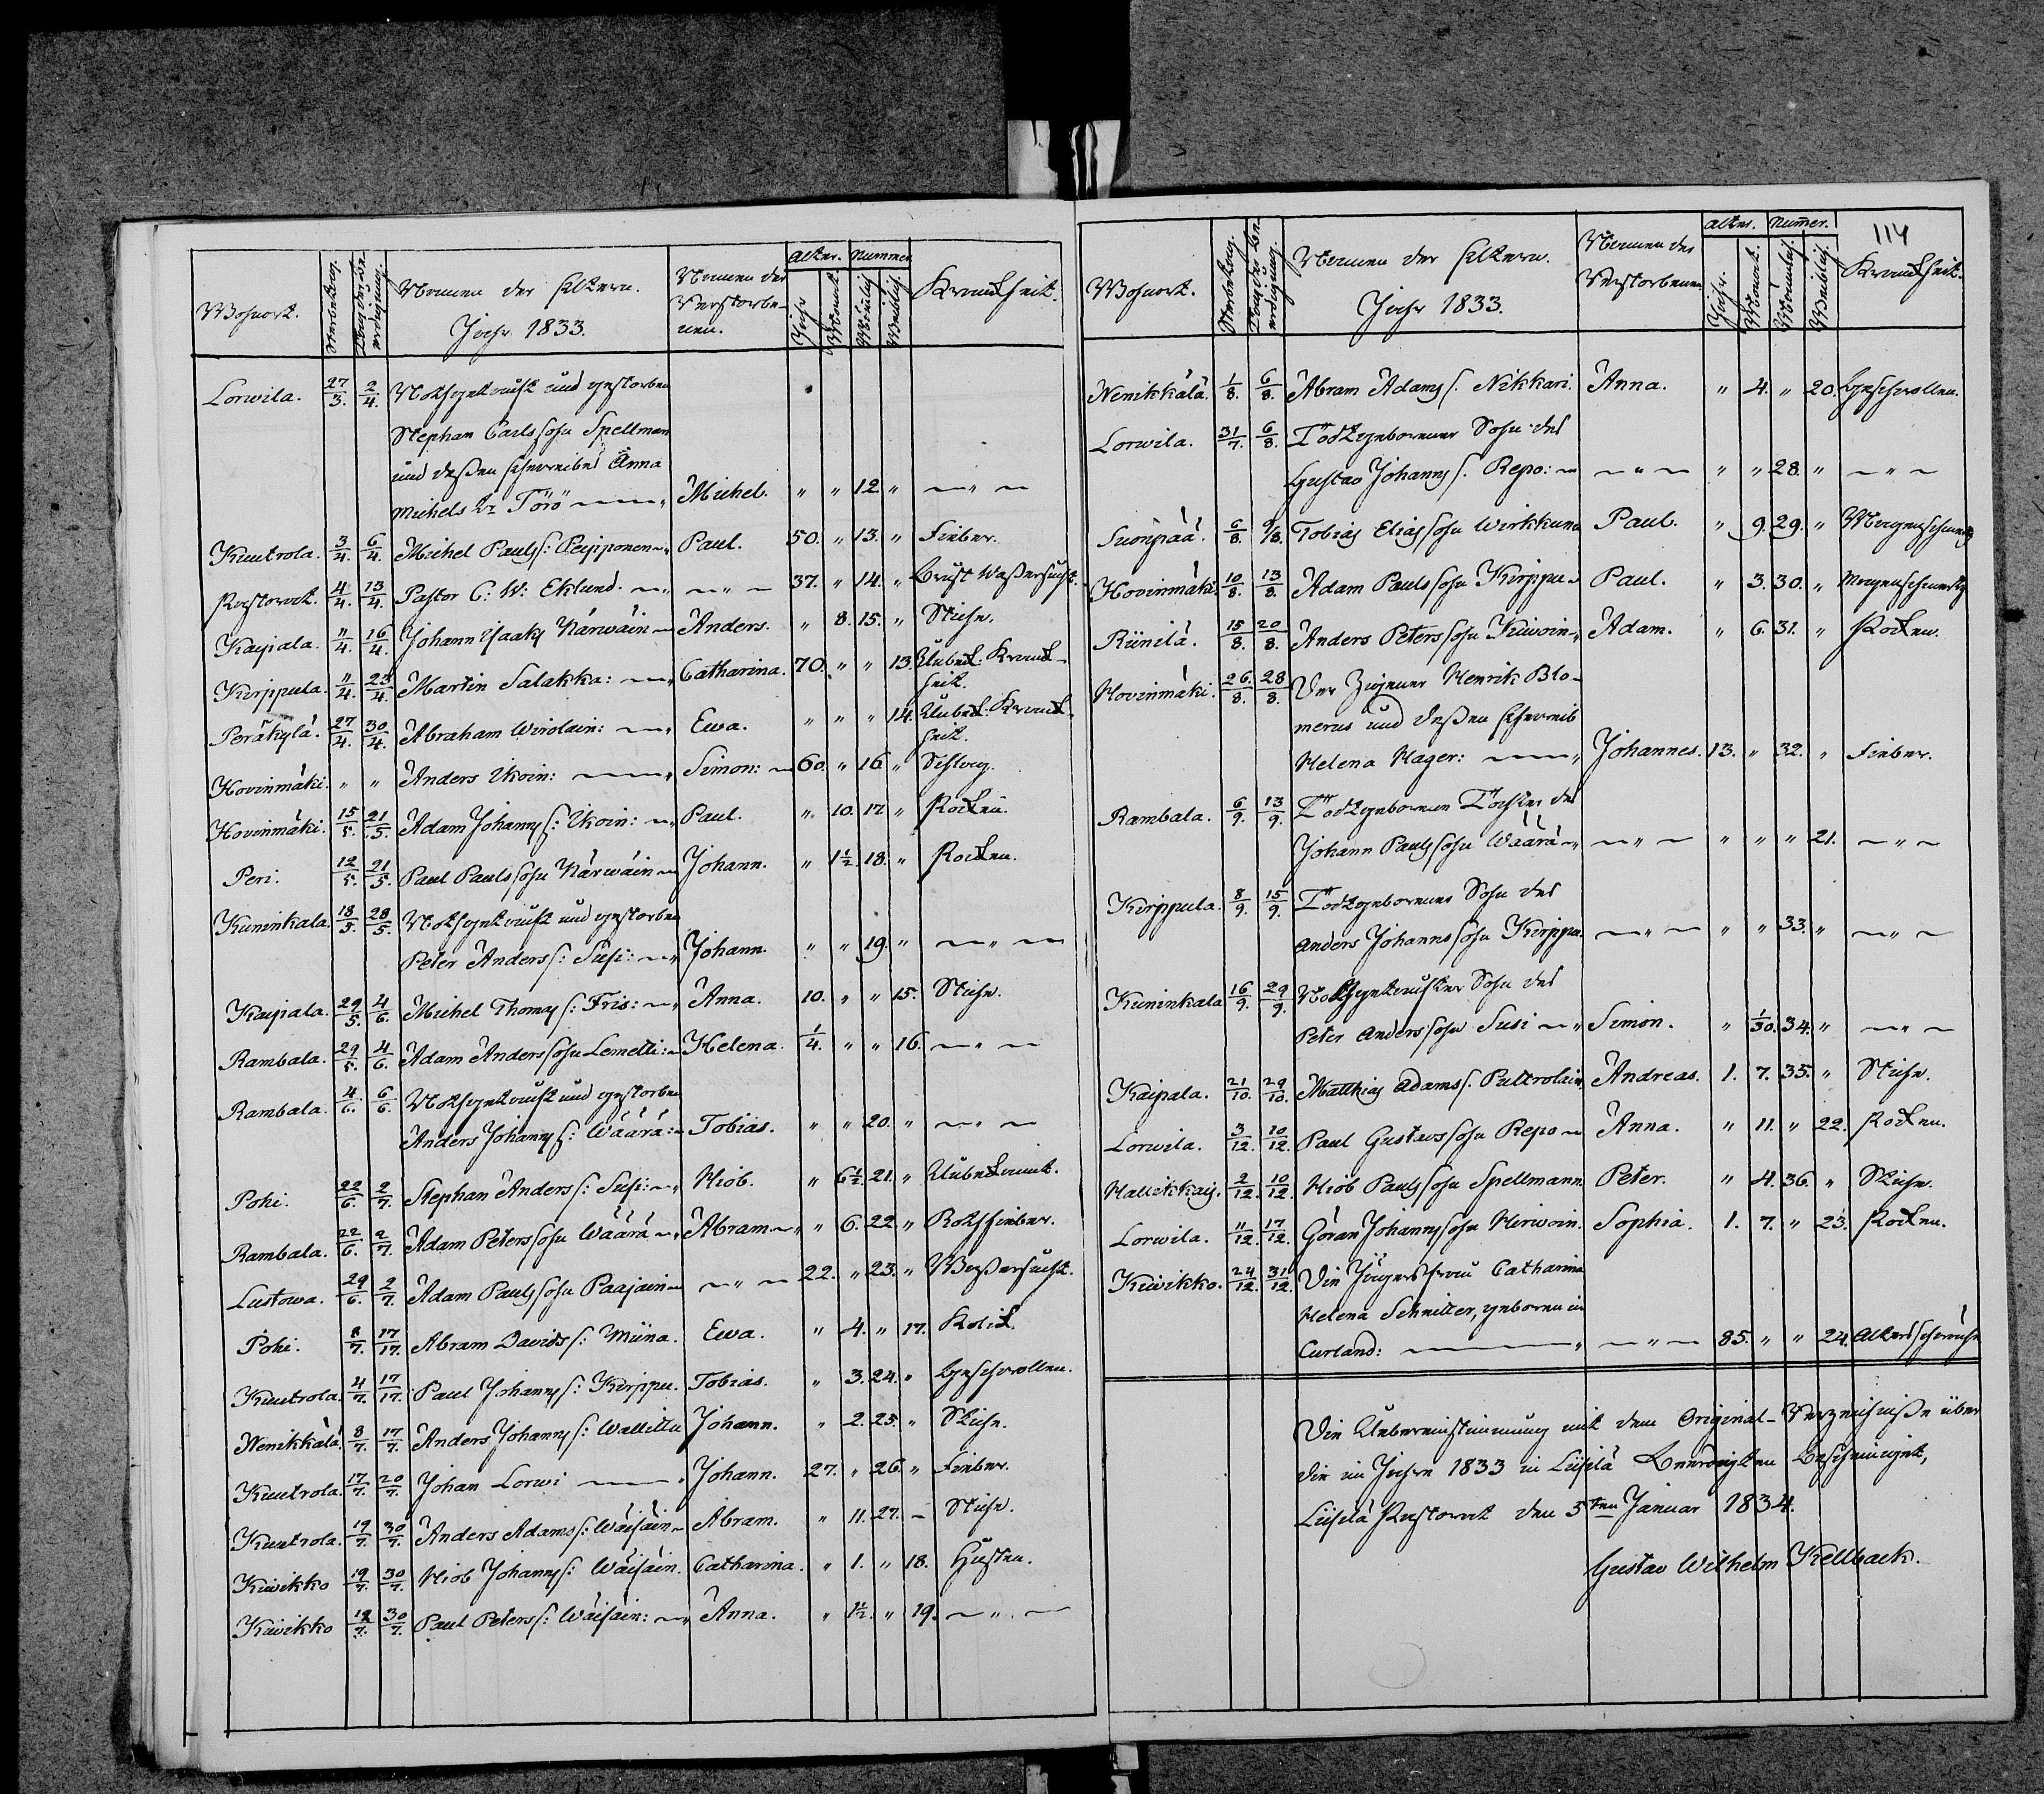 Wohnort. Sterbetag. Tag der Be- Namen der Eltern. Namen der Alter. Nummer. Krankheit.
erdigung. Jahr 1833. Verstorbe- Jahr Monat. Männlich Weiblich
nen.
Lorwila. 27/3. 2/4. Nothgetauft und gestorben
Stephan Carlssohn Spellman
und deßen Eheweibes Anna
Michels Törö Michel. " " 12 " — " —
Kuutrola. 3/4. 6/4. Michel Pauls s: Peipponen " Paul. 50. " 13. " Fieber.
Pastorat. 4/4. 13/4. Pastor C: W: Eklund. — " — 37. " 14. " Brust Waßersucht.
Kaipala. 11/4. 16/4. Johann Isaaks Närwäin Anders. " 8. 15. " Stiche.
Kirppula. 11/4. 23/4. Martin Salakka: — " Catharina. 70. " " 13. Unbek. Krank-
heit.
Peräkylä. 27/4. 30/4. Abraham Wirolain: — " Ewa. " " " 14. Unbek. Krank-
heit.
Hovinmäki. " " Anders Ikoin: — " Simon: 60. " 16 " Schlag.
Hovinmäki. 15/5. 21/5. Adam Johanns s: Ikoin: " Paul. " 10. 17. " Pocken.
Peri. 12/5. 21/5. Paul Pauls sohn Närwäin Johann. " 1½. 18. " Pocken.
Kuninkala. 18/5. 28/5. Nothgetauft und gestorben
Peter Anders s: Susi: " Johann. " " 19. " — " —
Kaipala. 29/5. 4/6. Michel Thomas s: Fris: " Anna. 10. " " 15. Stiche.
Rambala. 29/5. 4/6. Adam Anders sohn Lemetti: Helena. 1/4. " " 16. — " —
Rambala. 4/6. 6/6. Nothgetauft und gestorben
Anders Johanns s: Wäärä: Tobias. " " 20. " — " —
Pohi. 22/6. 2/7. Stephan Anders s: Susi: " Hiob. " 6½. 21. " Unbekannt.
Rambala. 22/6. 2/7. Adam Peters sohn Wäärä " Abram " " 6. 22. " Rothfieber.
Lustowa. 29/6. 2/7. Adam Pauls sohn Paajain — " — 22. " 23. " Waßersucht.
Pohi. 8/7. 17/17. Abram Davids s: Miina. Ewa. " 4. " 17. Kolik.
Kuutrola. 4/7. 17/17. Paul Johanns s: Kirppu. Tobias. " 3. 24. " Geschwollen.
Wenikkälä. 8/7. 17/7. Anders Johanns s: Wallittu Johann. " 2. 25. " Stiche.
Kuutrola. 17/7. 20/7. Johan Lorwi — " Johann. 27. " 26. " Fieber.
Kuutrola. 19/7. 30/7. Anders Adams s: Wäisäin Abram. " 11. 27. – Stiche.
Kiwikko 19/7. 30/7. Hiob Johanns s: Wäisäin. Catharina. " 1. " 18. Husten.
Kiwikko 30/7. Paul Peters s: Wäisäin: " Anna. " 1½. " 19. — " —
114
Wohnort. Sterbetag. Tag der Be- Namen der Eltern. Namen der Alter. Nummer. Krankheit.
erdigung. Jahr 1833. Verstorbenen Jahr. Monat. Männlich. Weiblich.
Wenikkälä. 1/8. 6/8. Abram Adams s. Nikkari. Anna. " 4. " 20. Geschwollen.
Lorwila. 31/7. 6/8. Todtgeborener Sohn des
Gustav Johanns s. Repo: — " — " " 28. " — " —
Suonpää. 6/8. 9/8. Tobias Elias sohn Wirkkunen Paul. " 9. 29. " Magenschmerz
Hovinmäki. 10/8. 13/8. Adam Pauls sohn Kirppu " Paul. " 3. 30. " Magenschmertz
Riinilä. 15/8. 20/8. Anders Peters sohn Kiiwoin " Adam. " 6. 31. " Pocken.
Hovinmäki. 26./8. 28/8. Der Zigeuner Henrik Blo-
merus und deßen Eheweib
Helena Hager: — " Johannes. 13. " 32. " Fieber.
Rambala. 6/9. 13/9. Todtgeborenen Tochter des
Johann Pauls sohn Wäärä " — " — " " " 21. — " —
Kirppula. 8/9. 15/9. Todtgeborener Sohn des
Anders Johanns sohn Kirppu. — " — " " 33. " — " —
Kuninkala 16/9. 29/9. Nothgetaufter Sohn des
Peter Anders sohn Susi " Simon. " 1/30. 34. " — " —
Kaipala. 21/10. 29/10. Matthias Adams s. Pultrolain Andreas. 1. 7. 35. " Stiche.
Lorwila. 3/12. 10/12. Paul Gustavs sohn Repo Anna. " 11. " 22. Pocken.
Hallikkais. 2/12. 10/12. Hiob Pauls sohn Spellmann Peter. " 4. 36. " Stiche.
Lorwila. 11/12. 17/12. Göran Johanns sohn Hirwoin. Sophia. 1. 7. " 23. Pocken.
Kiwikko. 24/12. 31/12. Die Jägersfrau Catharina
Helena Schmitter, geboren in
Curland: — " — " — 85. " " 24. Altersschwäche
Die Uebereinstimmung mit dem Original-Verzeichniße über
die im Jahre 1833 in Liisilä Beerdigten bescheiniget,
Liisilä Pastorat den 5ten Januar 1834.
Gustav Wilhelm Kellback.